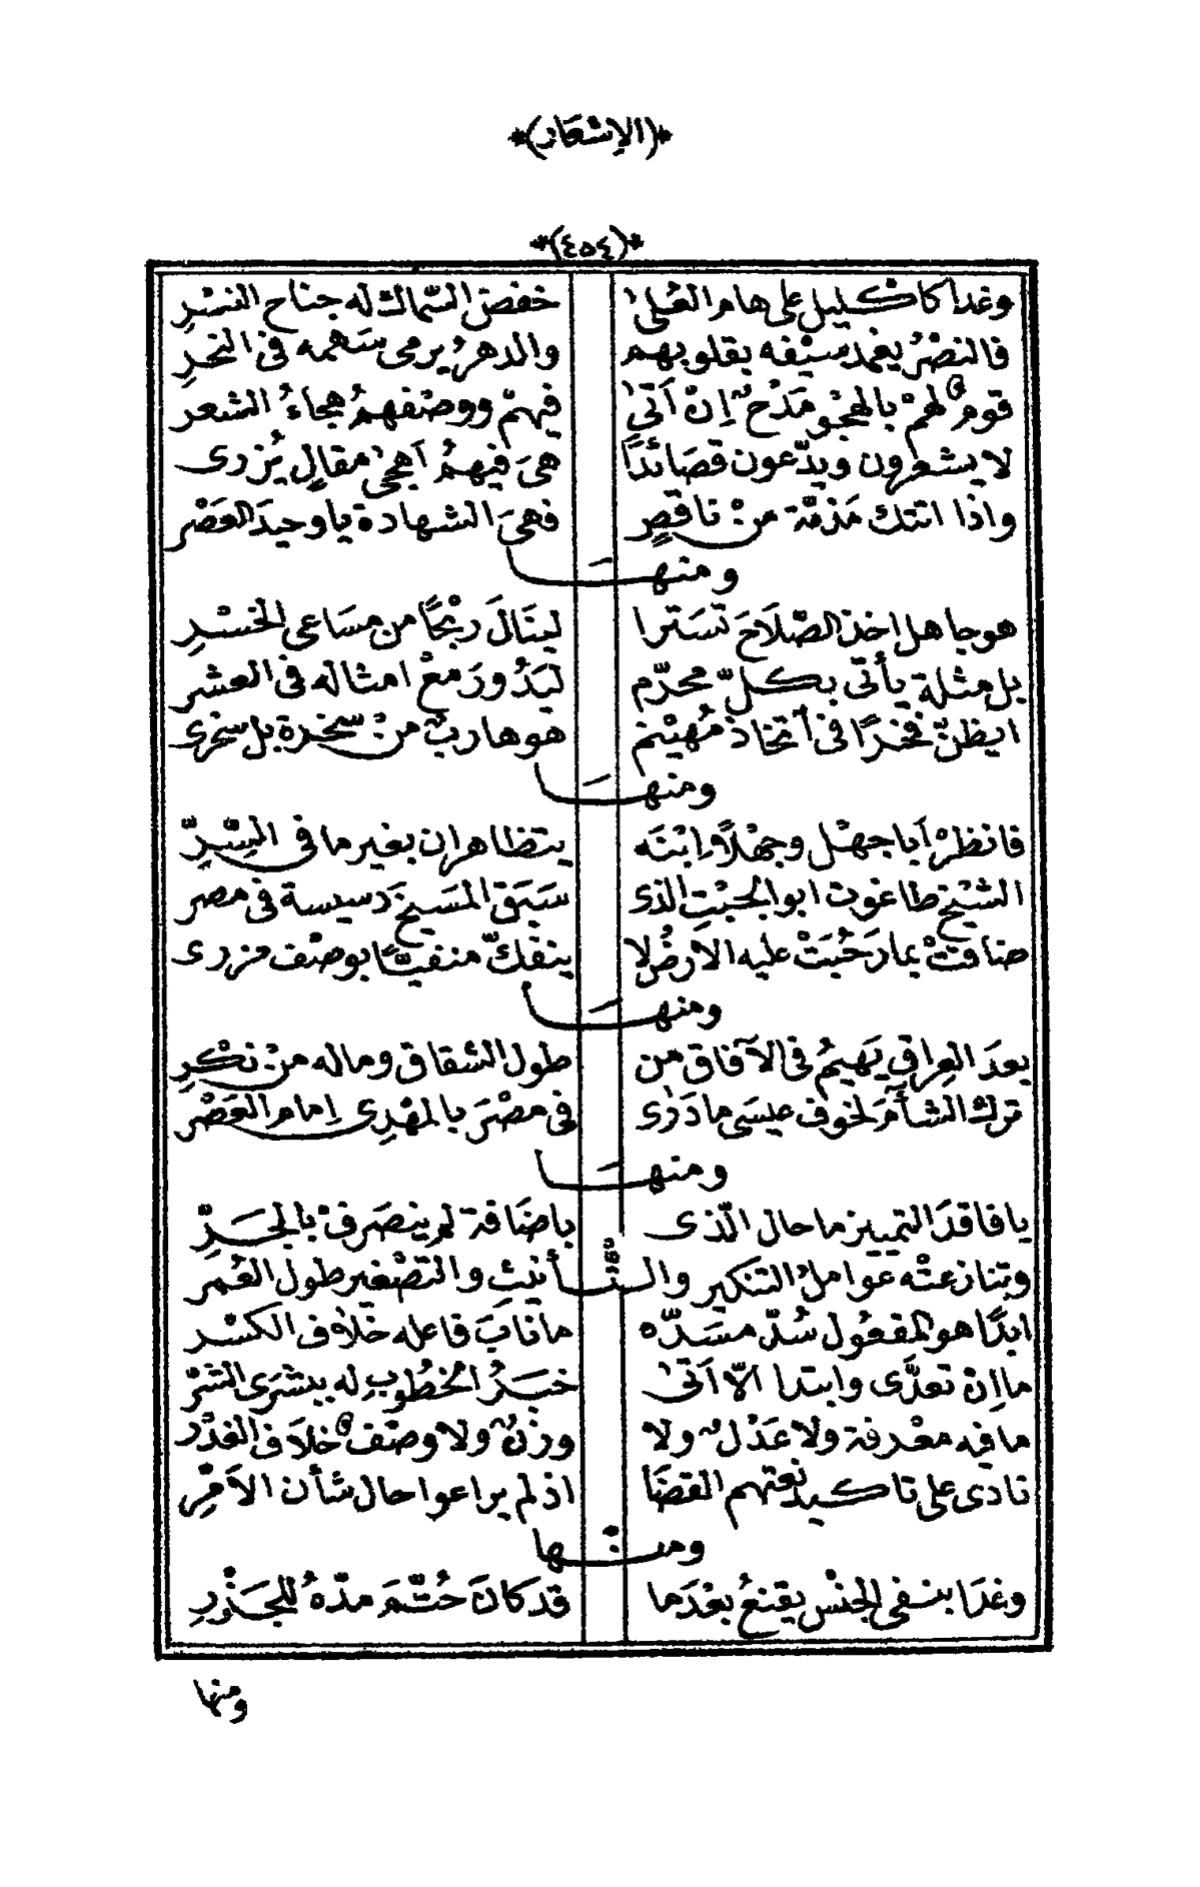 *(الاشعار)*
*(٤٥٤)*
وغدا كاكليل على هام العُلىٰ خفض السّماك له جناح النسْرِ
فالنصْرُ يغمد سيْفه بقلوبهم والدهرُ يرمى سَهمه فى النحرِ
قوم لهمْ بالهجْو مَدْحٌ اِنْ اَتىٰ فيهمْ ووصْفهمُ هجاءُ الشعر
لا يشعرون ويدّعون قصَائدًا هىَ فيهمُ اَهجىٰ مقالٍ يُزرى
واذا اتتك مَذمّة منْ ناقصٍ فهىَ الشهادة ياوحيدَ العَصْر
ومنهـَـا
هو جاهل اخذ الصّلَاحَ تسَترا لينَالَ ربْحًا من مسَاعى الخسْرِ
بل مثلة يأتى بكلّ محرّم ليَدُورَ معْ امثاله فى العشر
ايظنّ فخرًا فى اتخاذ مُهيْنم هو هاربٌ منْ سخرة بل سخرى
ومنهـَـا
فانظرْ اَبا جهْل وجهْلًا وابْنَه يتظاهران بغير ما فى السِّرِّ
الشيْخ طاغوت ابو الجبْتِ الذى سَبَق المَسَيخَ دسيسة فى مصر
ضاقتْ بما رَحُبَتْ عليه الارضُ لا ينفكّ منفيًّا بوصْف مزرى
ومنهـَـا
بعدَ العِراقِ يَهيمُ فى الآفاق من طول الشقاق وماله منْ نكْرِ
ترك الشأمَ لخوف عيسَى ما دَرٰى فى مصْرَ بالمهْدِى اِمام العَصْر
ومنهـَـا
يا فاقدَ التمييز ما حال الّذى باضَافة لم ينصَرفْ بالجَرِّ
وتنازعتْه عواملُ التنكير والتَّأنيثِ والتصْغير طول العُمر
ابدًا هو المفعول سُدّ مسَدّه ما نابَ فاعله خلاف الكسْر
ما اِنْ تعدَّى وابتدا الّا اَتىٰ خبَرُ الخطُوبِ له ببشرَى الشرْ
ما فيه معْرفة ولا عَدْلٌ ولا وزْنٌ ولا وصْف خلَاف الغدْر
نادى على تاكيد نعتهم القضَا اذ لم يراعوا حال شأن الاَمْرِ
ومنـها
وغدَا بنفى الجنْس يقنعُ بعْدَما قد كانَ حُتّمَ مدّهُ للجَذْرِ
ومنها